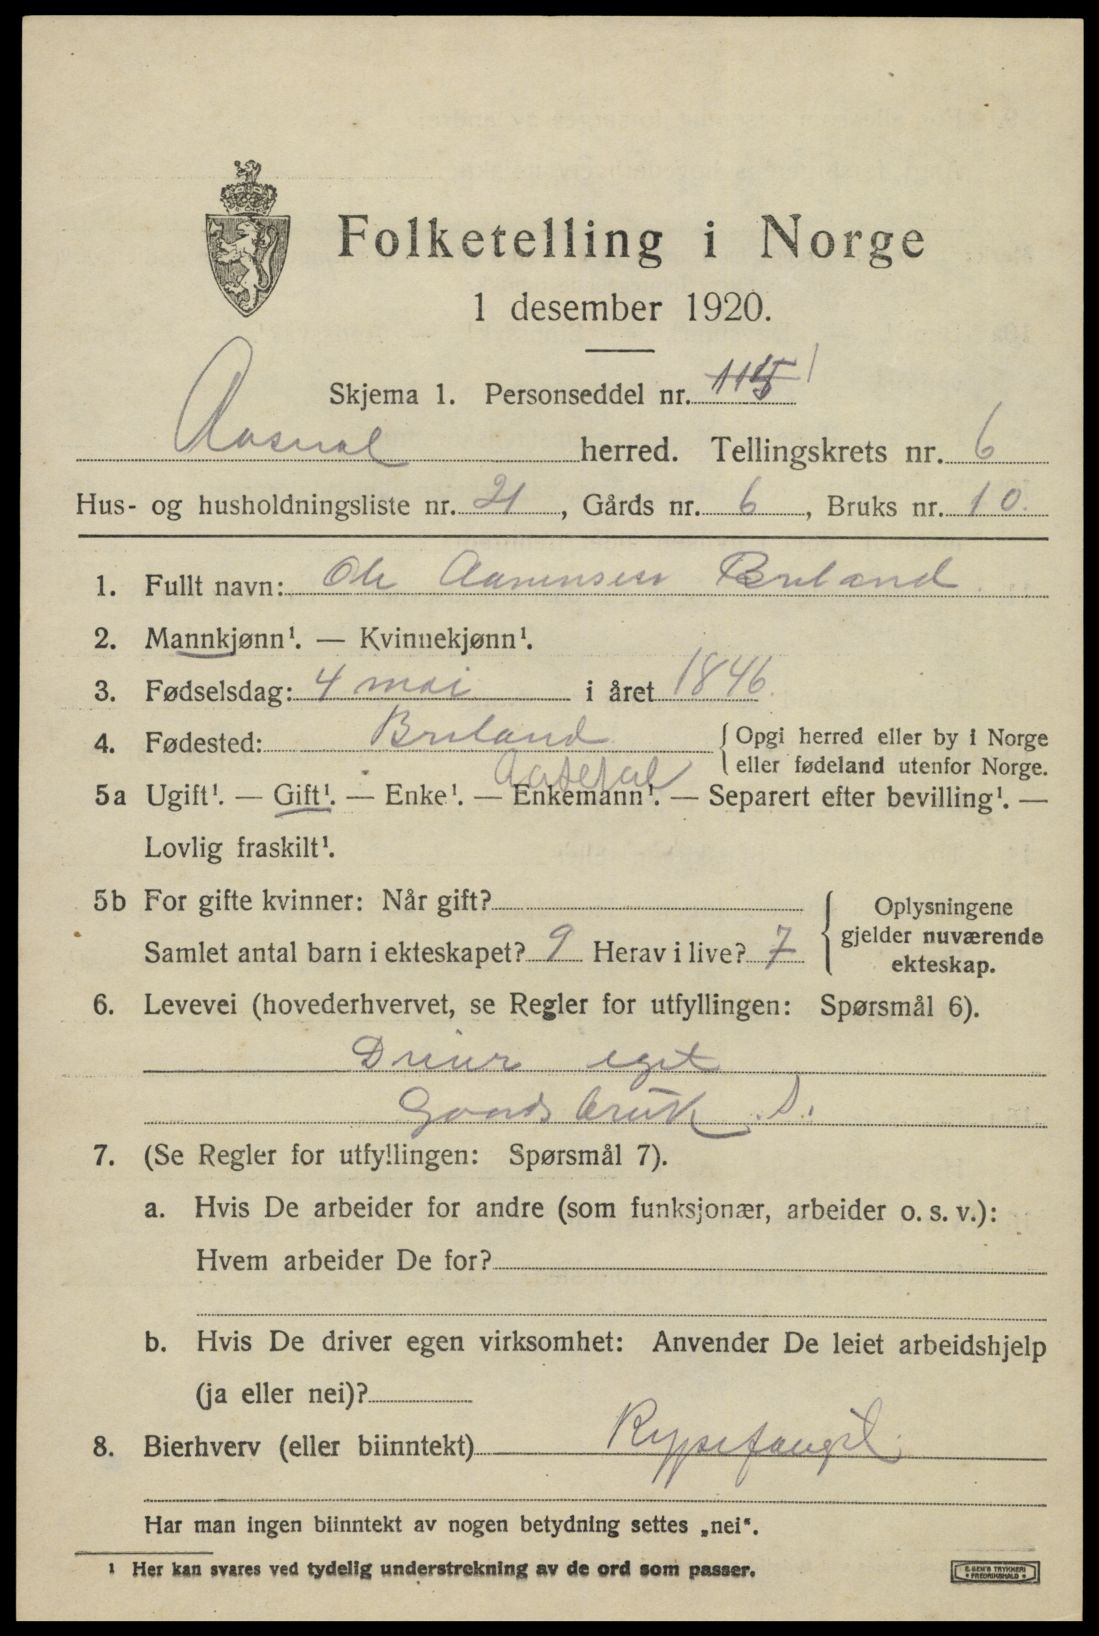 Folketelling i Norge
1 desember 1920.
Skjema 1. Personseddel nr. 115 1
Aaseral herred. Tellingskrets nr. 6
Hus- og husholdningsliste nr. 21, Gårds nr. 6, Bruks nr. 10.
1. Fullt navn: Ole Aanensen Breland
2. Mannkjønn¹. — Kvinnekjønn¹.
3. Fødselsdag: 4 mai i året 1846.
4. Fødested: Breland {Opgi herred eller by i Norge
Aaseral eller fødeland utenfor Norge.
5a Ugift¹. — Gift¹. — Enke¹. — Enkemann¹. — Separert efter bevilling¹. —
Lovlig fraskilt¹.
5b For gifte kvinner: Når gift? Oplysningene
Samlet antal barn i ekteskapet? 9 Herav i live? 7 gjelder nuværende
ekteskap.
6. Levevei (hovederhvervet, se Regler for utfyllingen: Spørsmål 6).
Driver eget
Gaardsbruk. S.
7. (Se Regler for utfyllingen: Spørsmål 7).
a. Hvis De arbeider for andre (som funksjonær, arbeider o. s. v.):
Hvem arbeider De for?
b. Hvis De driver egen virksomhet: Anvender De leiet arbeidshjelp
(ja eller nei)?
8. Bierhverv (eller biinntekt) Rypefangst.
Har man ingen biinntekt av nogen betydning settes „nei“.
¹ Her kan svares ved tydelig understrekning av de ord som passer.